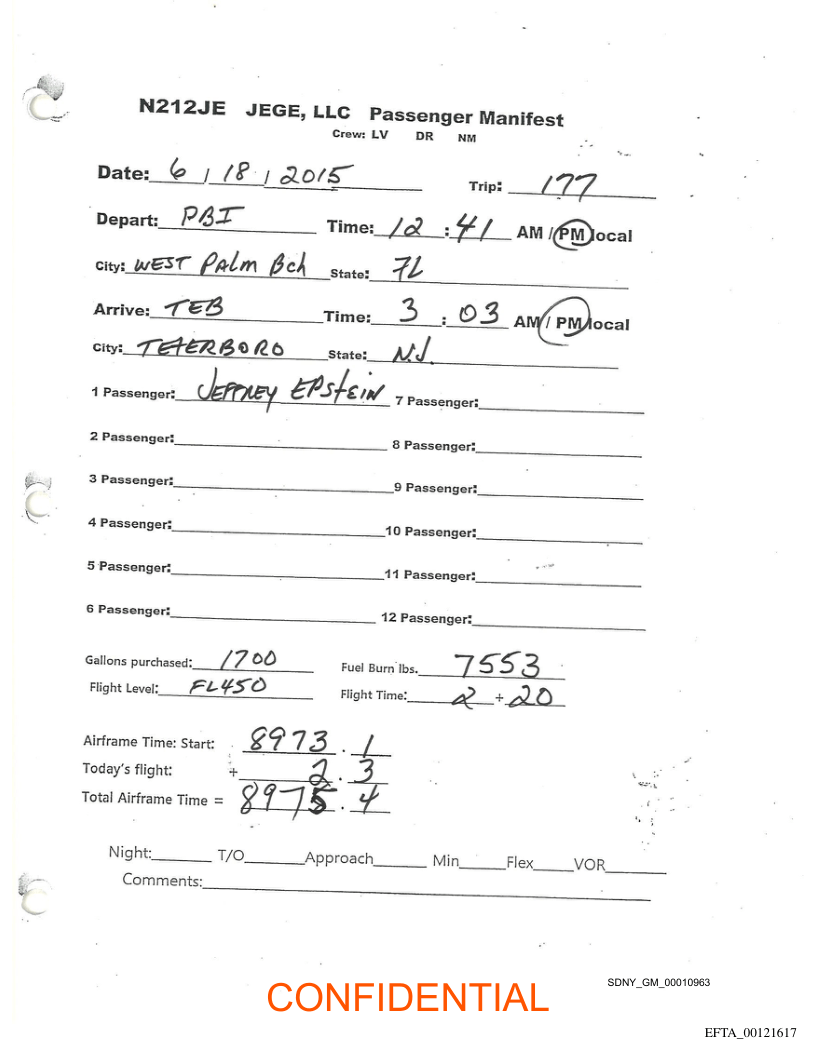 N212JE JEGE, LLC Passenger Manifest
Crew: LV DR NM
Date: 6 / 18 / 2015 Trip: 177
Depart: PBI Time: 12 : 41 AM / PM local
City: WEST PALM BcH State: FL
Arrive: TEB Time: 3 : 03 AM / PM local
City: TETERBORO State: N.J.
1 Passenger: JEFFREY EPSTEIN 7 Passenger:
2 Passenger: 8 Passenger:
3 Passenger: 9 Passenger:
4 Passenger: 10 Passenger:
5 Passenger: 11 Passenger:
6 Passenger: 12 Passenger:
Gallons purchased: 1700 Fuel Burn lbs. 7553
Flight Level: FL450 Flight Time: 2 + 20
Airframe Time: Start: 8973 . 1
Today's flight: + 2 . 3
Total Airframe Time = 8975 . 4
Night: T/O Approach Min Flex VOR
Comments:
CONFIDENTIAL
SDNY_GM_00010963
EFTA_00121617